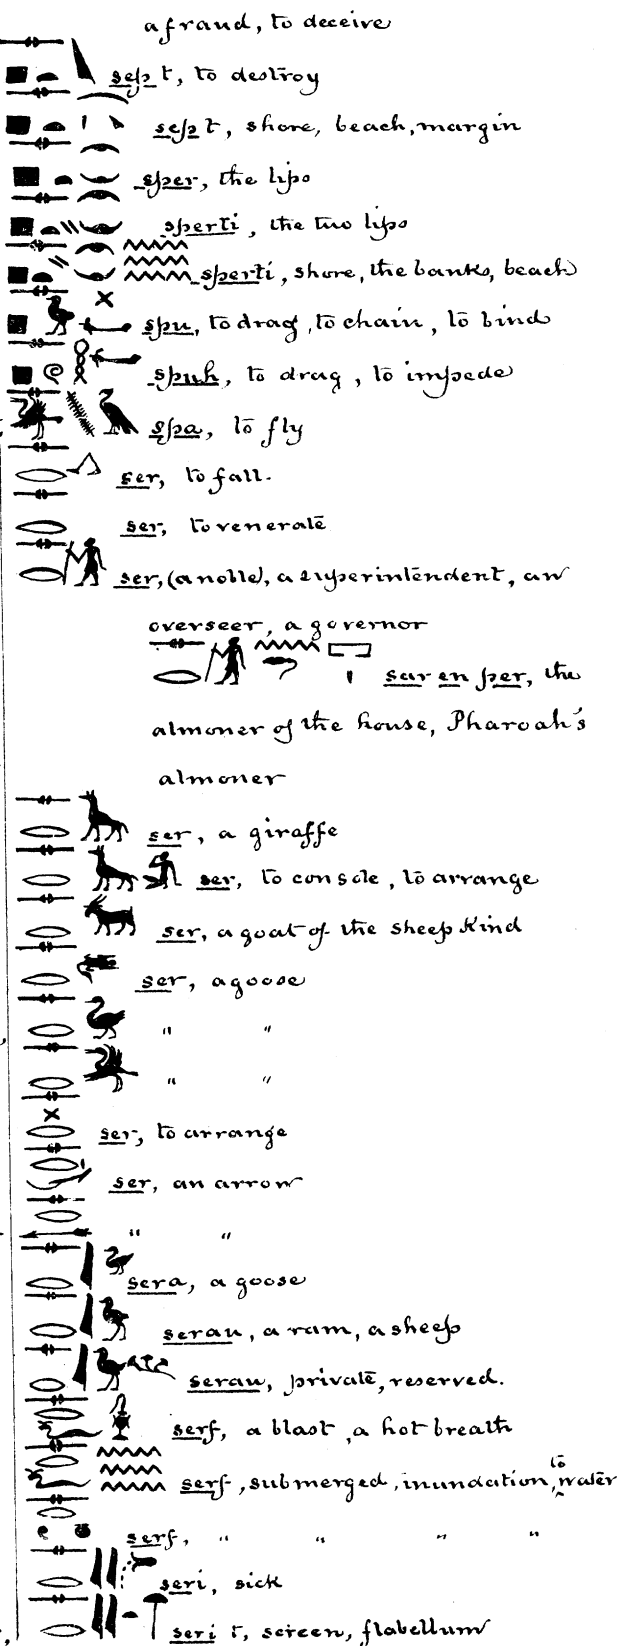 a fraud, to deceive
sep t, to destroy
sep t, shore, beach, margin
sper, the lips
sperti, the two lips
sperti, shore, the banks, beach
spu, to drag, to chain, to bind
spuh, to drag, to impede
spa, to fly
ser, to fall.
ser, to venerate
ser, (a noble), a superintendent, an
overseer, a governor
sar en per, the
almoner of the house, Pharoah's
almoner
ser, a giraffe
ser, to console, to arrange
ser, a goat of the sheep Kind
ser, a goose
" "
" "
ser, to arrange
ser, an arrow
" "
sera, a goose
serau, a ram, a sheep
serau, private, reserved.
serf, a blast, a hot breath
serf, submerged, inundation, to water
serf, " " " "
seri, sick
seri t, screen, flabellum